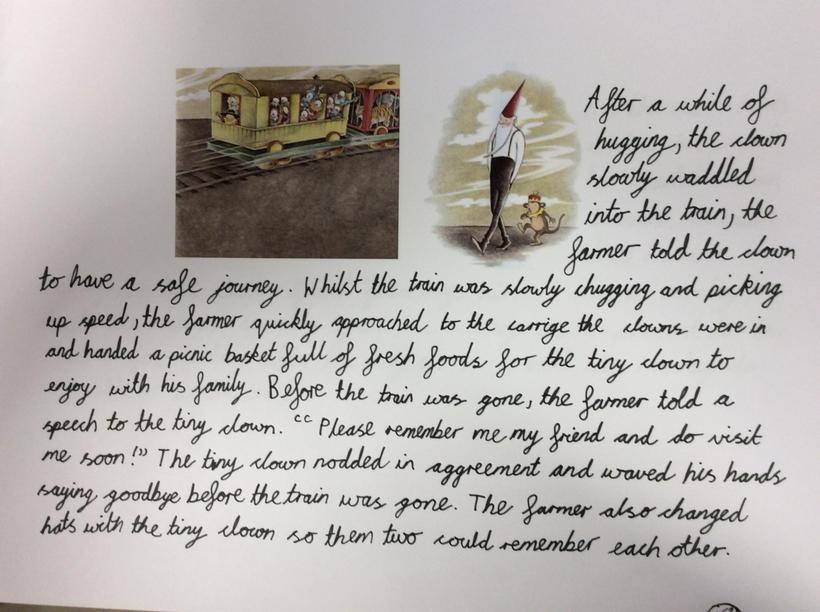 After a while of
hugging, the clown
slowly waddled
into the train, the
farmer told the clown
to have a safe journey. Whilst the train was slowly chugging and picking
up speed, the farmer quickly approached to the carrige the clowns were in
and handed a picnic basket full of fresh foods for the tiny clown to
enjoy with his family. Before the train was gone, the farmer told a
speech to the tiny clown. “Please remember me my friend and do visit
me soon!” The tiny clown nodded in aggreement and waved his hands
saying goodbye before the train was gone. The farmer also changed
hats with the tiny clown so them two could remember each other.